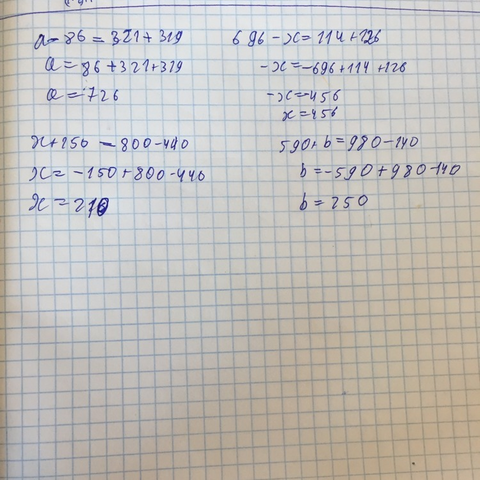 a - 86 = 321 + 319
a = 86 + 321 + 319
a = 726
x + 150 = 800 - 440
x = -150 + 800 - 440
x = 210
696 - x = 114 + 126
-x = -696 + 114 + 126
-x = -456
x = 456
590 + b = 980 - 140
b = -590 + 980 - 140
b = 250